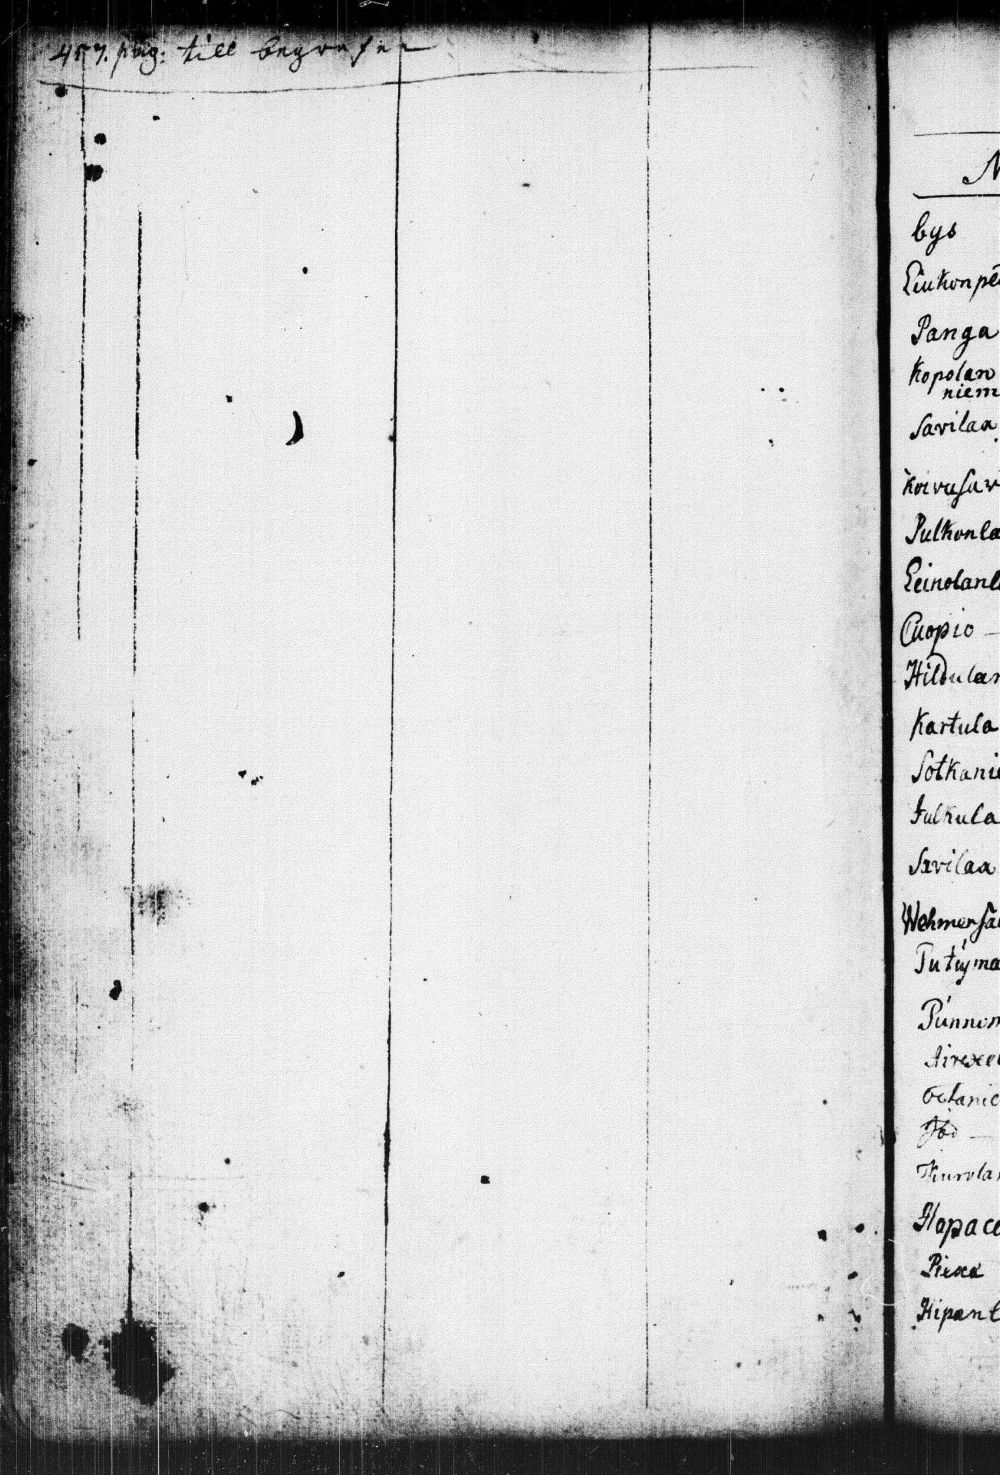 457. pag: till begrafn
N
bys
Liukonpe
Panga
Kopolan
niem
Savilax
Koivusar
Pulkonla
Leinolanl
Cuopio —
Hildulan
Kartula
Sotkanie
Julkula
Savilax
Wehmersa
Putüjma
Punnon
Airaxe
Jöö —
Kurola
Hapace
Riexa
Hipanl